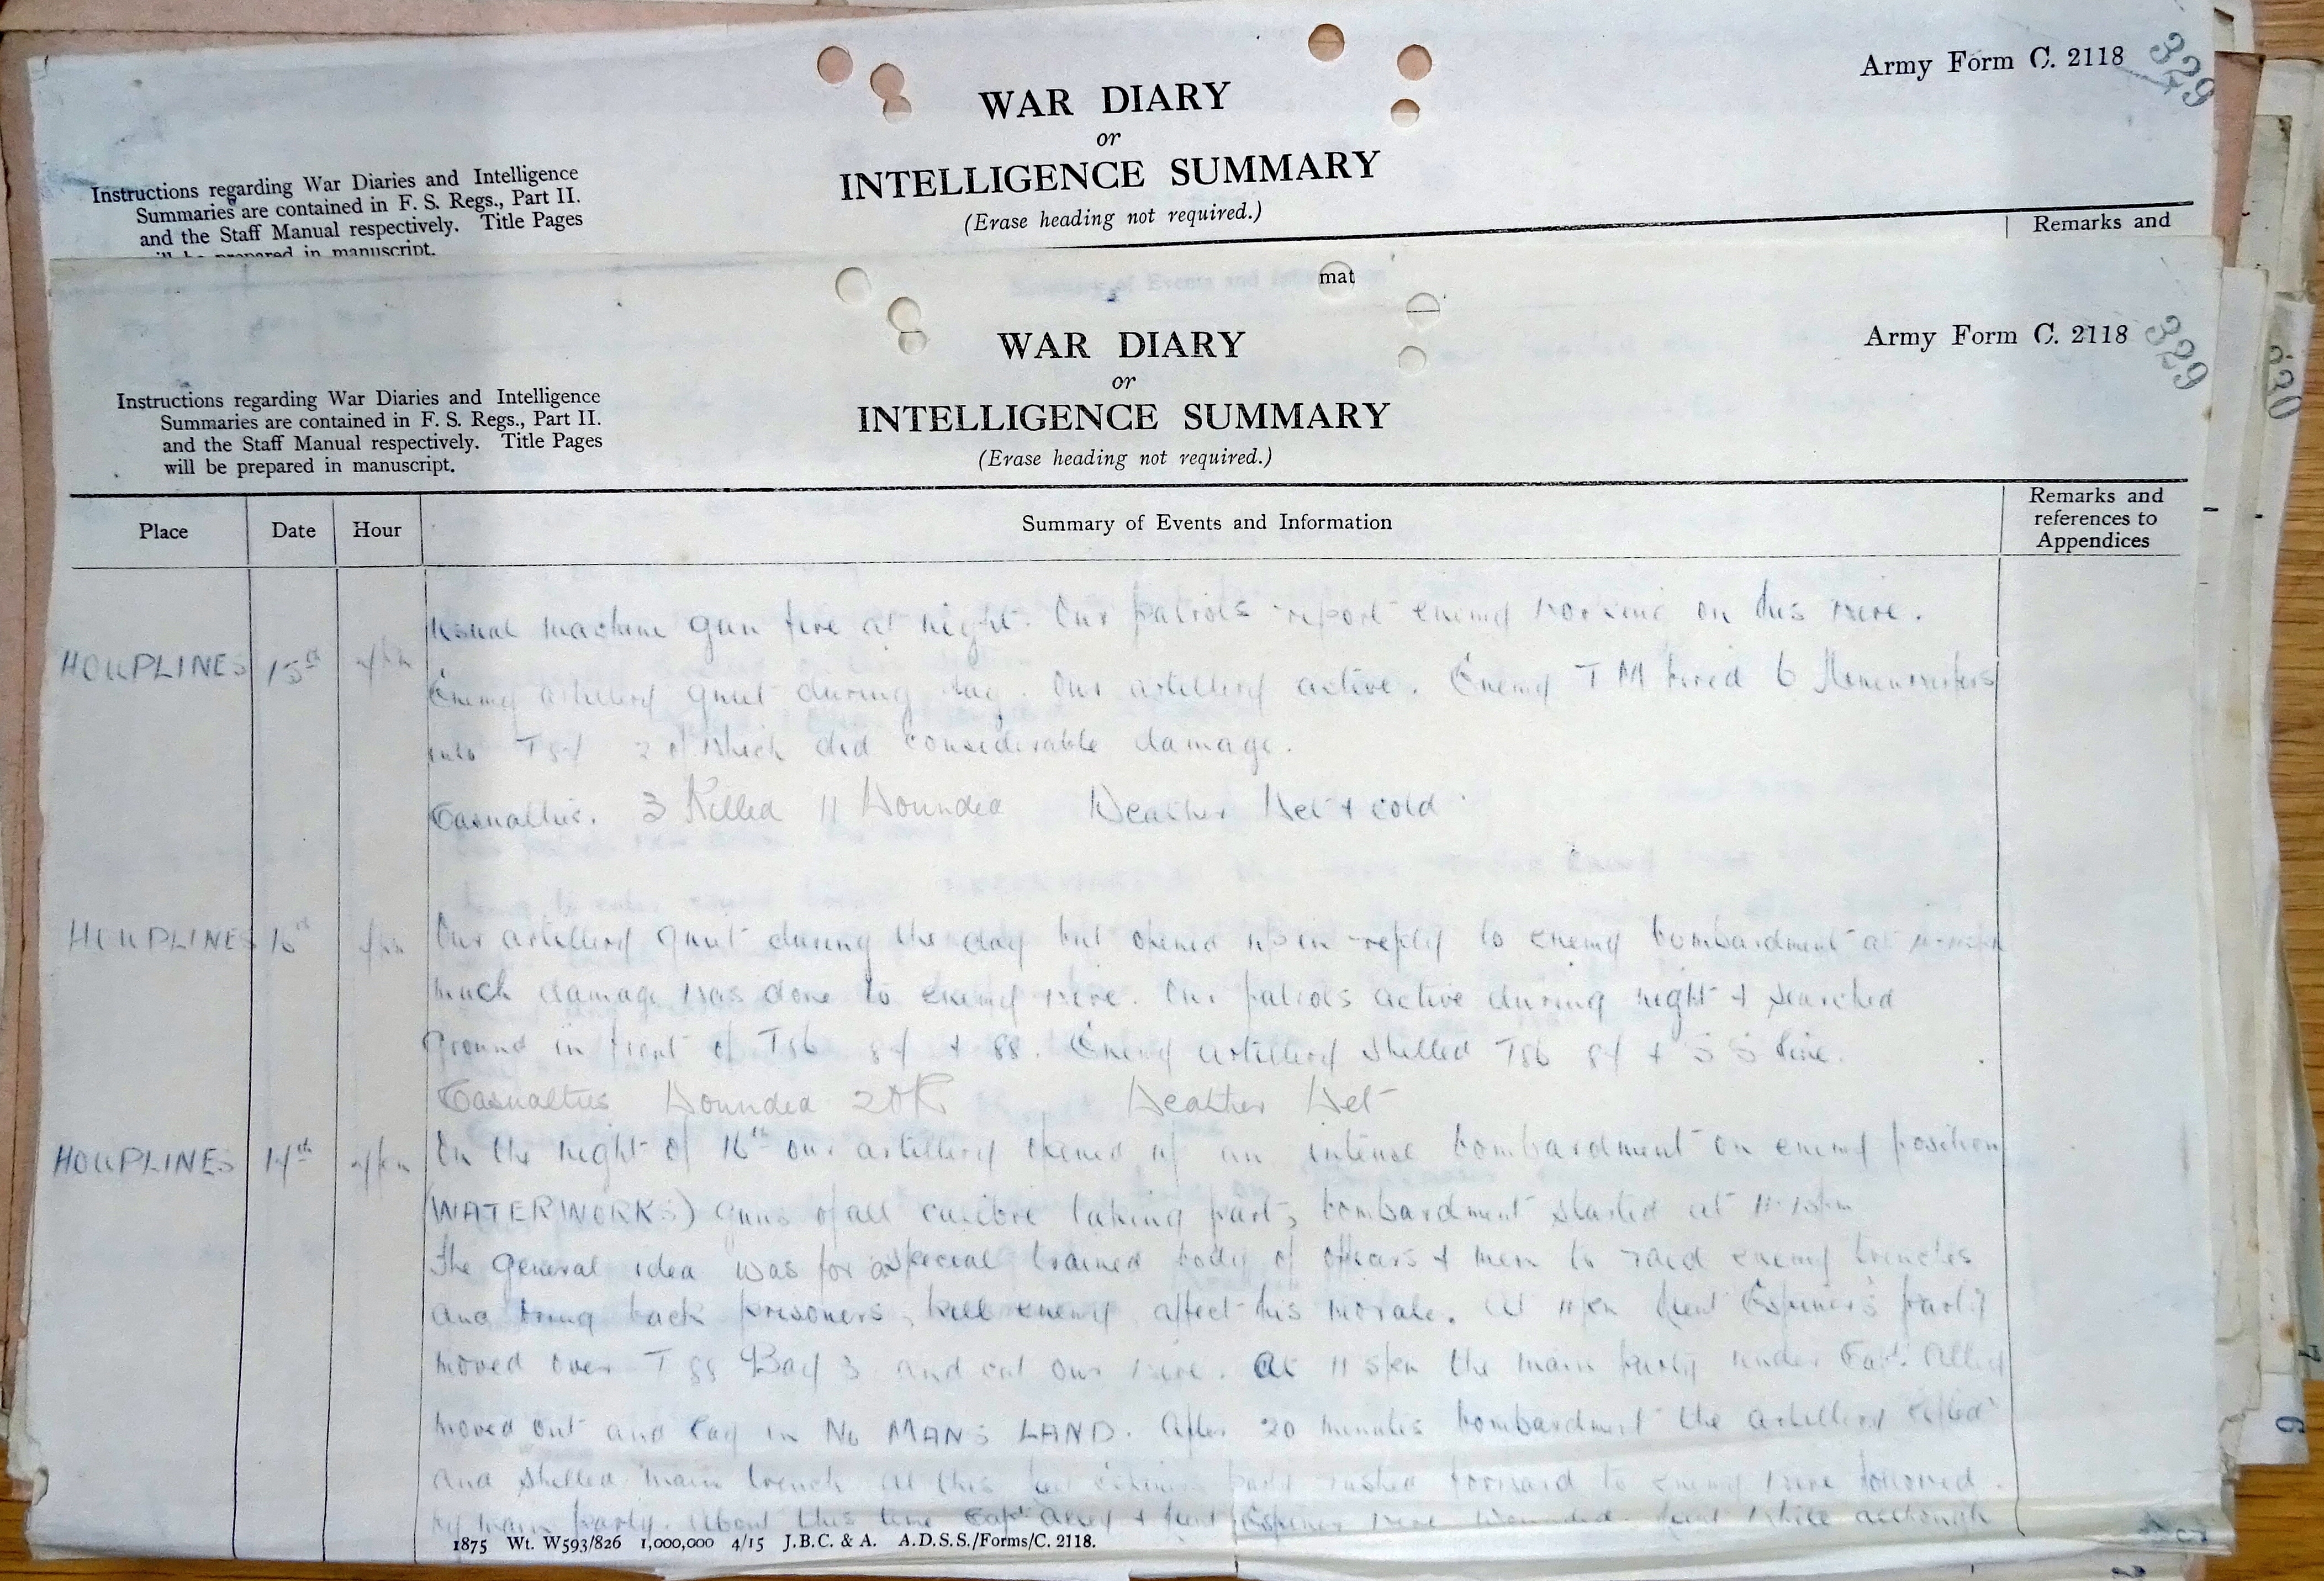 Army Form C. 2118
329
WAR DIARY
or
INTELLIGENCE SUMMARY
(Erase heading not required.)
Instructions regarding War Diaries and Intelligence
Summaries are contained in F. S. Regs., Part II.
and the Staff Manual respectively. Title Pages
will be prepared in manuscript.
Remarks and
mat
Army Form C. 2118
329
WAR DIARY
or
INTELLIGENCE SUMMARY
(Erase heading not required.)
Instructions regarding War Diaries and Intelligence
Summaries are contained in F. S. Regs., Part II.
and the Staff Manual respectively. Title Pages
will be prepared in manuscript.
Place
Date
Hour
Summary of Events and Information
Remarks and
references to
Appendices
Usual machine gun fire at night. Our patrols report enemy working on his wire.
HOUPLINES 15th
Enemy artillery quiet during day. Our artillery active. Enemy T M fired 6 Minenwerfers
into 2 of which did considerable damage.
Casualties. 3 Killed 11 Wounded Weather Wet & cold
HOUPLINES 16th
Our artillery quiet during the day but opened up in reply to enemy bombardment at
much damage was done to enemy wire. Our patrols active during night & searched
ground in front of T86 87 & 88. Enemy artillery shelled T86 87 & S S line.
Casualties Wounded 2 OR Weather Wet
HOUPLINES 17th
On the night of 16th our artillery opened up an intense bombardment on enemy position
(WATERWORKS) guns of all calibre taking part, bombardment started at 11.15pm
The general idea was for a special trained body of officers & men to raid enemy trenches
and bring back prisoners, kill enemy affect his morale. At 11pm Lieut Espiner's party
moved over T 88 Bay 3 and cut our wire. At 11 5pm the main party under Capt. Alley
moved out and lay in NO MANS LAND. After 20 minutes bombardment the artillery lifted
and shelled main trench at this party rushed forward to enemy wire followed
by main party. About this time Capt Alley & Lieut Espiner were wounded. Lieut White although
1875 Wt. W593/826 1,000,000 4/15 J.B.C. & A. A.D.S.S./Forms/C. 2118.